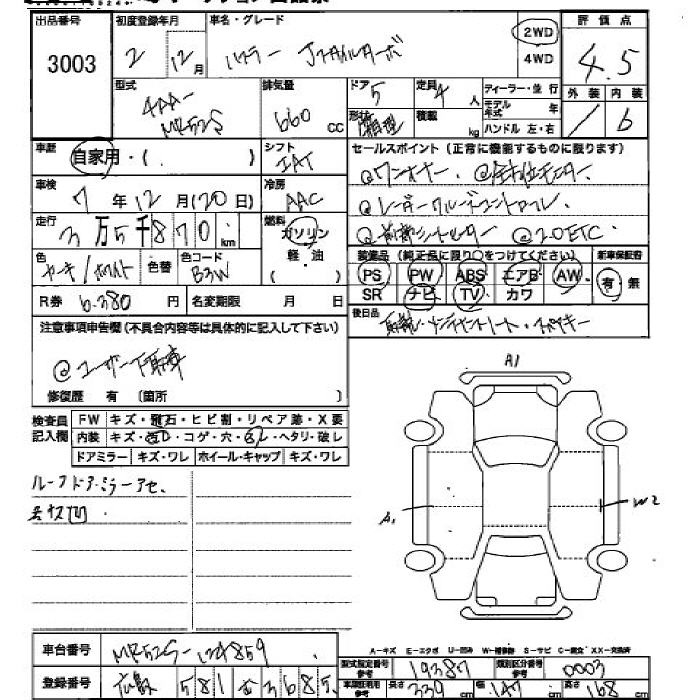 出品番号 初度登録年月 車名・グレード 評価点
3003 2 12月 ハスラー Jスタイルターボ 2WD 4WD 4.5
型式 4AA- MR52S 排気量 660 CC ドア 5 定員 4人 ディーラー・並行 外装 内装
形状 箱型 積載 kg モデル年式 年 ハンドル 左・右 / 6
車歴 自家用・( ) シフト IAT セールスポイント (正常に機能するものに限ります)
車検 7年12月(20日) 冷房 AAC @ワンオーナー @全方位モニター
走行 3万5千870km 燃料 ガソリン 軽・油 ( ) @レーダークルーズコントロール
@前席シートヒーター @2.0ETC
色 色替 色コード B3W 装備品 (純正品に限り○をつけてください) 新車保証書
PS PW ABS エアB AW 有・無
R券 6.380円 名変期限 月 日 SR ナビ TV カワ
注意事項申告欄(不具合内容等は具体的に記入して下さい) 後日品
@ユーザー下取車
修復歴 有 (箇所 )
検査員記入欄 FW キズ・飛石・ヒビ割・リペア跡・X要
内装 キズ・汚レ・コゲ・穴・スレ・ヘタリ・破レ
ドアミラー キズ・ワレ ホイール・キャップ キズ・ワレ
ルーフドアミラーアセ
A1
A1 W2
A-キズ E-エクボ U-凹み W-補修跡 S-サビ C-腐食 XX-交換済
車台番号 MR52S-124859 型式指定番号 19387 類別区分番号 0003
登録番号 広島 581 む 3685 車検証利用参考 長さ 339cm 幅 147cm 高さ 168cm